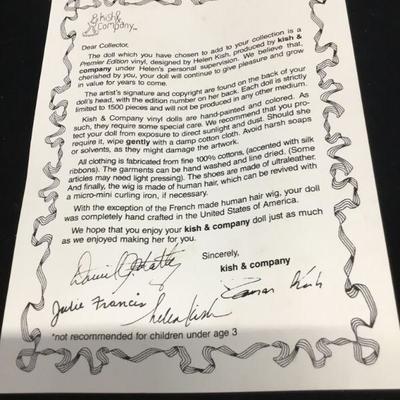 Kish &
Company
Dear Collector,
The doll which you have chosen to add to your collection is a
Premier Edition vinyl, designed by Helen Kish, produced by kish &
company under Helen's personal supervision. We believe that,
cherished by you, your doll will continue to give pleasure and grow
in value for years to come.
The artist's signature and copyright are found on the back of your
doll's head, with the edition number on her back. Each doll is strictly
limited to 1500 pieces and will not be produced in any other medium.
Kish & Company vinyl dolls are hand-painted and colored. As
such, they require some special care. We recommend that you pro-
tect your doll from exposure to direct sunlight and dust. Should she
require it, wipe gently with a damp cotton cloth. Avoid harsh soaps
or solvents, as they might damage the artwork.
All clothing is fabricated from fine 100% cottons, (accented with silk
ribbons). The garments can be hand washed and line dried. (Some
articles may need light pressing). The shoes are made of ultraleather.
And finally, the wig is made of human hair, which can be revived with
a micro-mini curling iron, if necessary.
With the exception of the French made human hair wig, your doll
was completely hand crafted in the United States of America.
We hope that you enjoy your kish & company doll just as much
as we enjoyed making her for you.
Sincerely,
kish & company
Julie Francis
Helen Kish
Kish
*not recommended for children under age 3